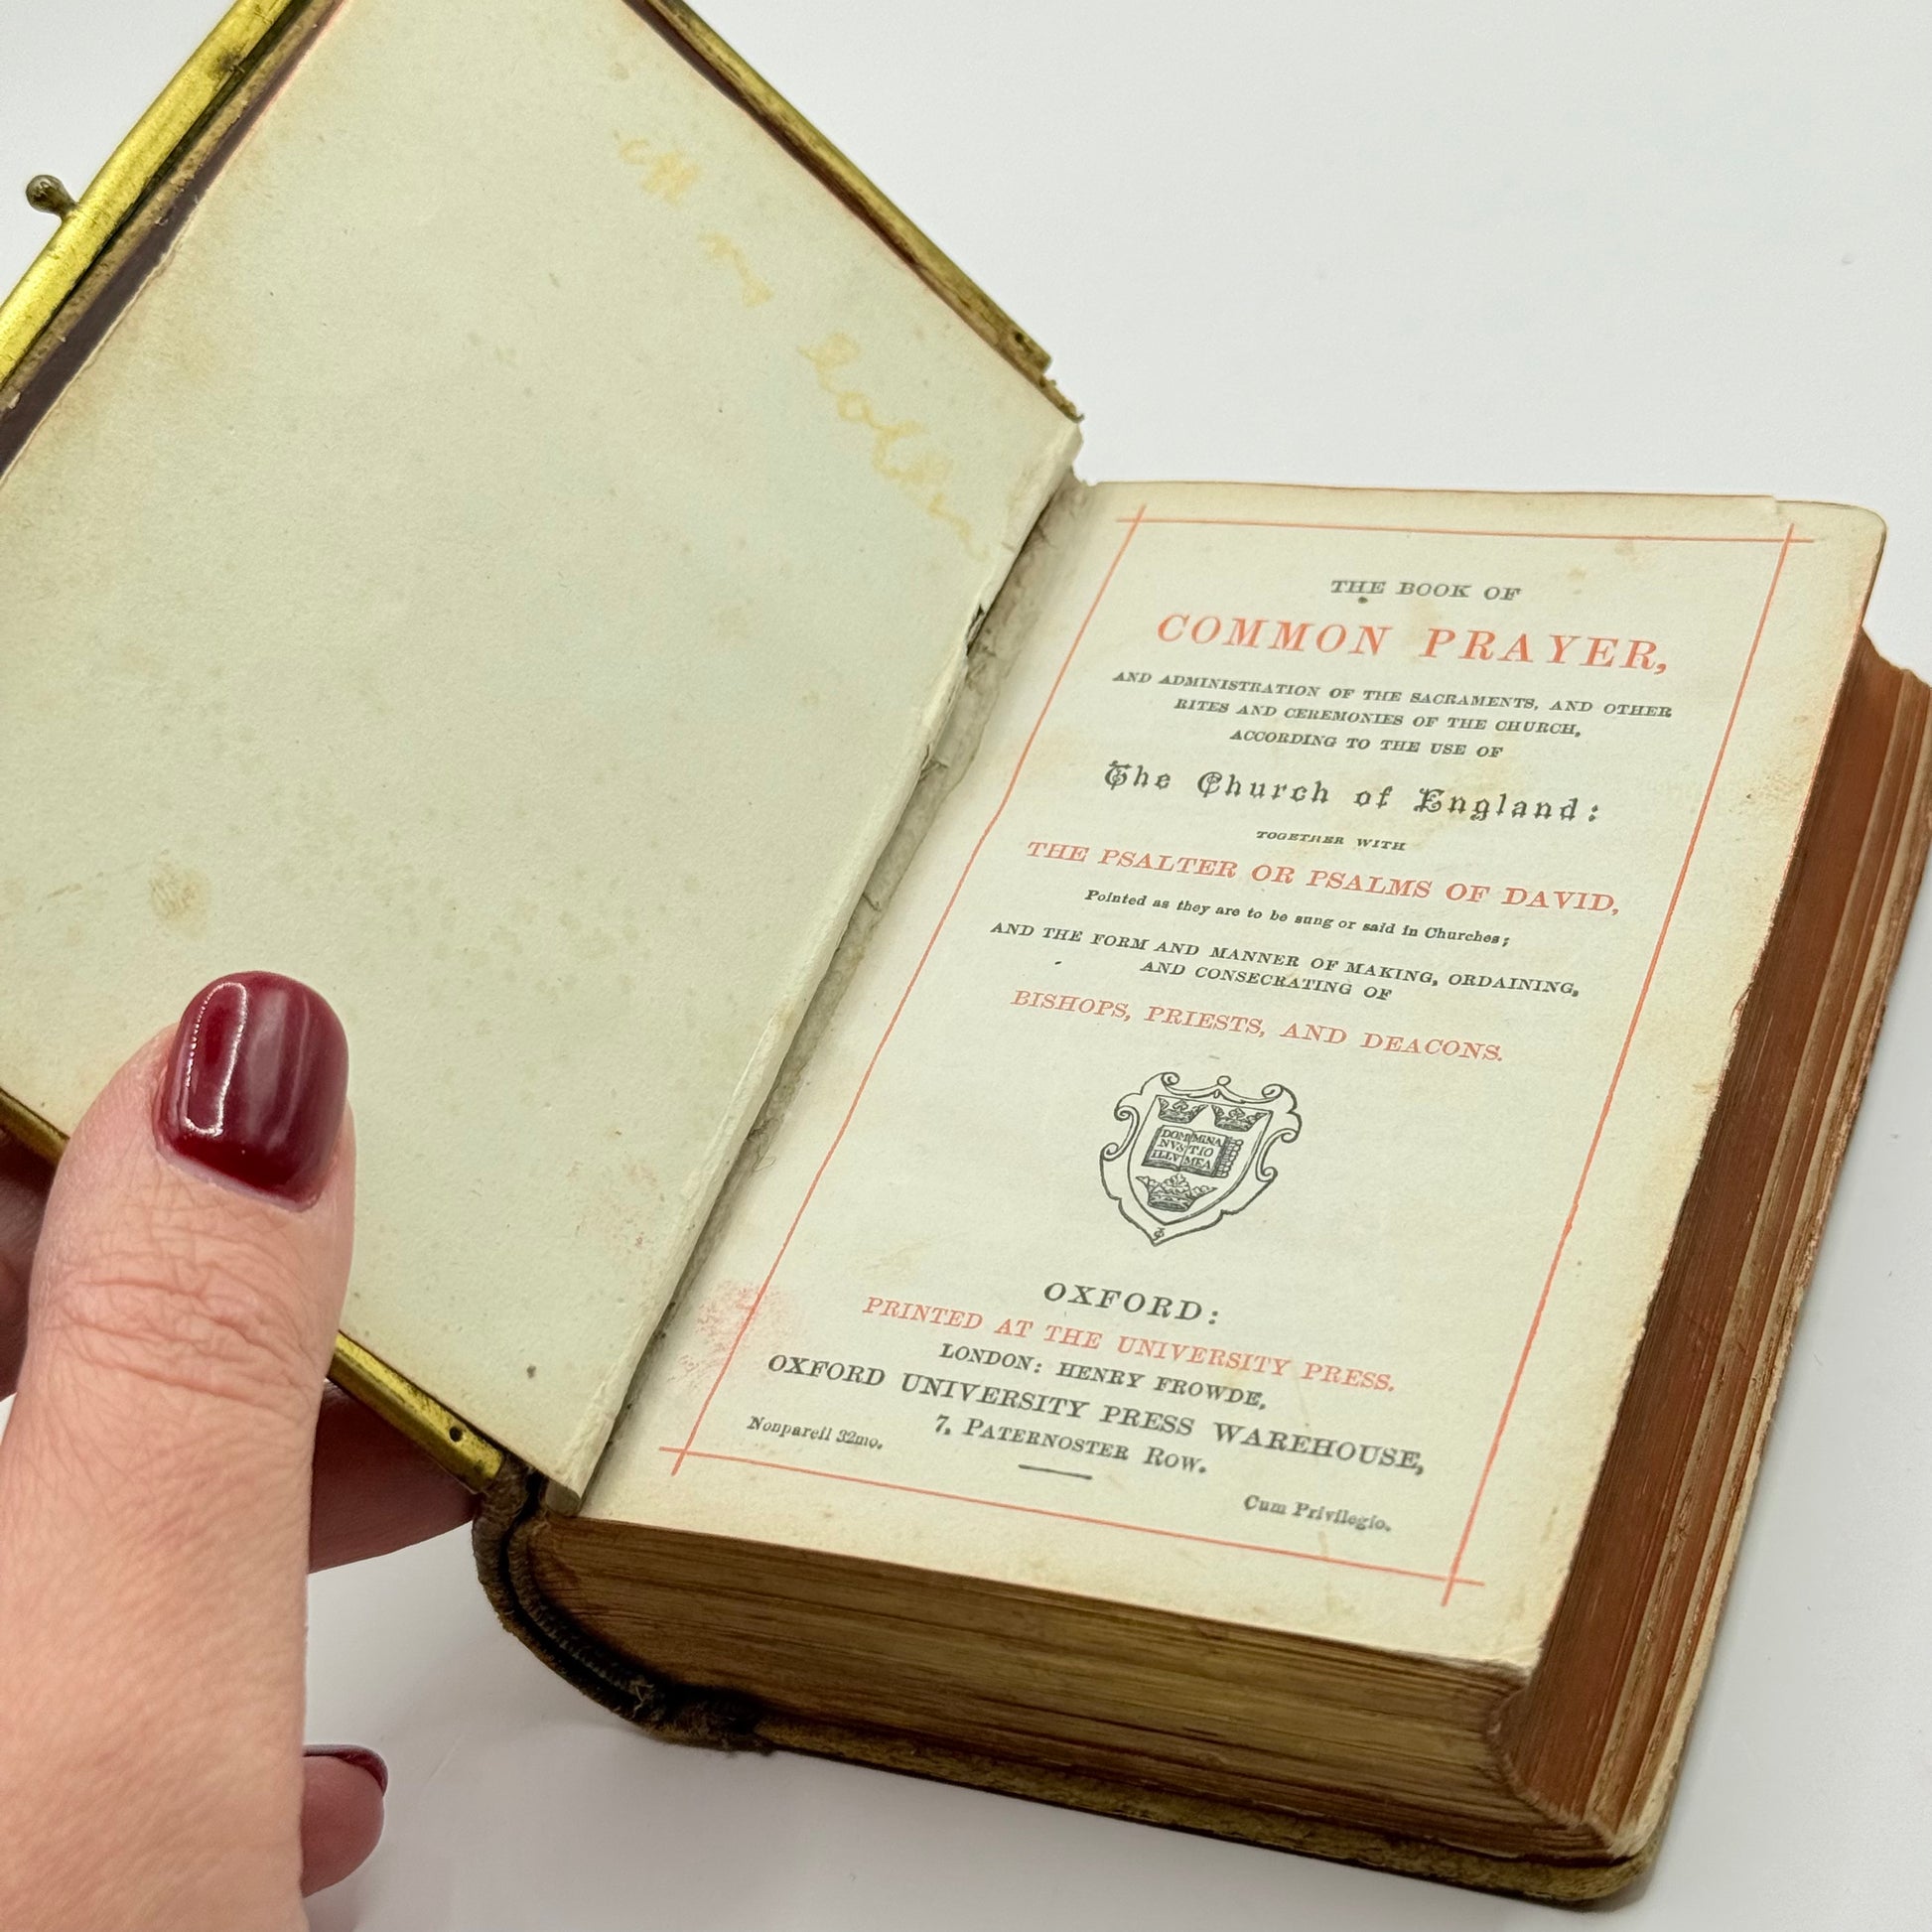 THE BOOK OF
COMMON PRAYER,
AND ADMINISTRATION OF THE SACRAMENTS, AND OTHER
RITES AND CEREMONIES OF THE CHURCH,
ACCORDING TO THE USE OF
The Church of England:
TOGETHER WITH
THE PSALTER OR PSALMS OF DAVID,
Pointed as they are to be sung or said in Churches;
AND THE FORM AND MANNER OF MAKING, ORDAINING,
AND CONSECRATING OF
BISHOPS, PRIESTS, AND DEACONS.
DOMI MINA
NVS TIO
ILLV MEA
OXFORD:
PRINTED AT THE UNIVERSITY PRESS.
LONDON: HENRY FROWDE,
OXFORD UNIVERSITY PRESS WAREHOUSE,
7, PATERNOSTER ROW.
Nonpareil 32mo.
Cum Privilegio.